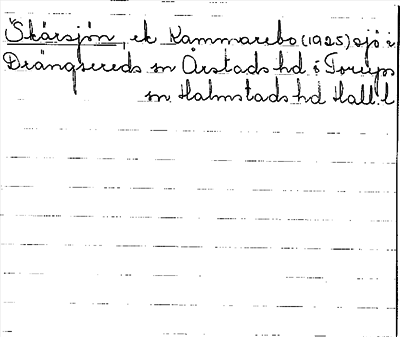 "Skärsjön, ek Kammarebo (1925) sjö i
Drängsereds sn Årstads hd o Torups
sn Halmstads hd Hall. l